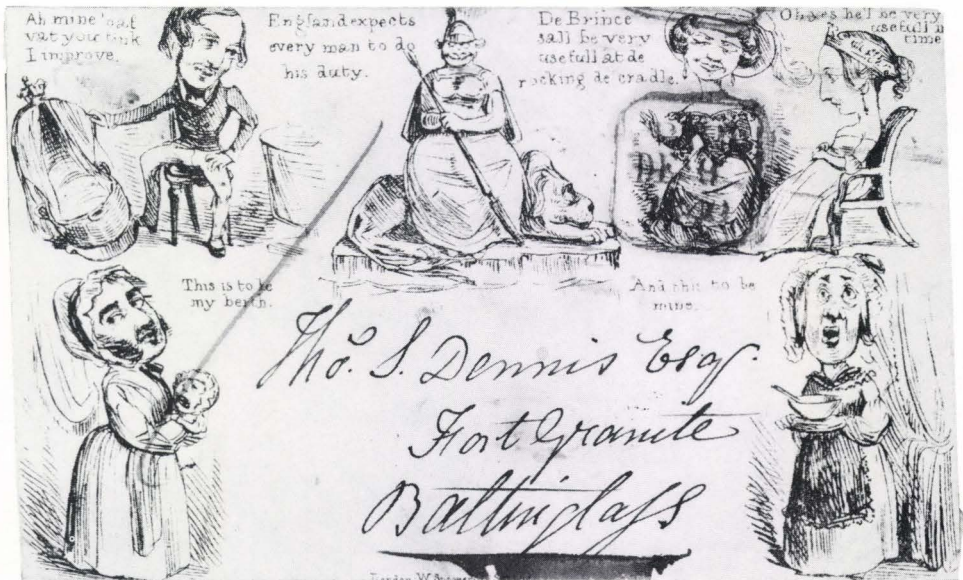 Ah mine 'oat
vat you tink
I improve.
England expects
every man to do
his duty.
De Brince
sall be very
usefull at de
rocking de cradle.
Oh yes he'l be very
usefull in
time
This is to be
my berth.
And this to be
mine.
Tho.s S. Dennis Esq.
Fort Granite
Baltinglass
London W.